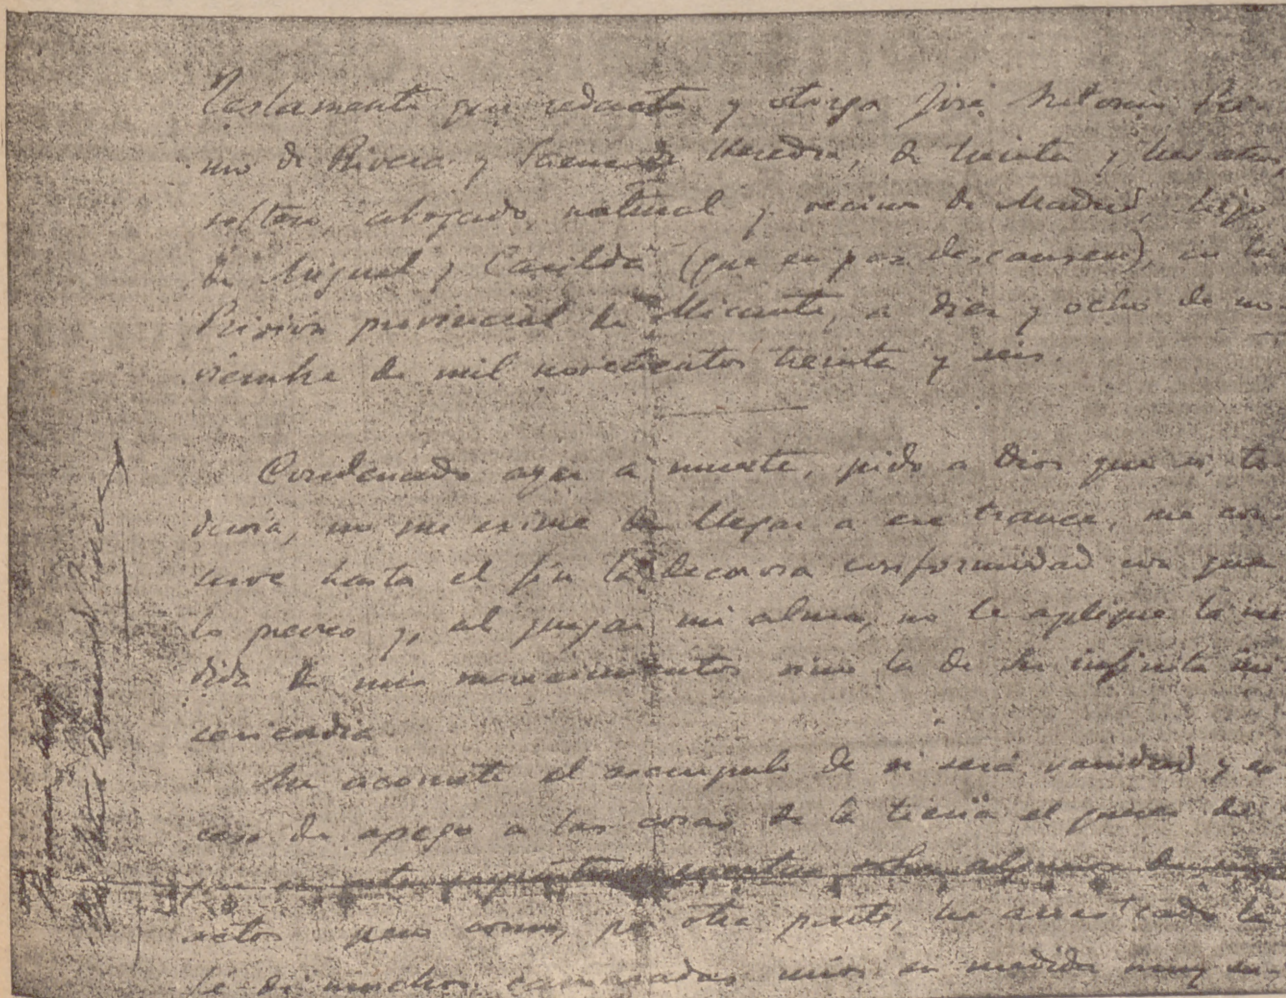 Testamento que redacta y otorga José Antonio Pri
mo de Rivera y Sáenz de Heredia, de treinta y tres años,
soltero, abogado, natural y vecino de Madrid, hijo
de Miguel y Casilda (que en paz descansen), en la
Prisión provincial de Alicante, a diez y ocho de no
viembre de mil novecientos treinta y seis.
Condenado ayer a muerte, pido a Dios que si to
davía no me exime de llegar a ese trance, me con
serve hasta el fin la decorosa conformidad con que
lo preveo y, al juzgar mi alma, no le aplique la me
dida de mis merecimientos sino la de su infinita mi
sericordia.
Me acomete el escrúpulo de si será vanidad y ex
ceso de apego a las cosas de la tierra el querer de
jar en esta coyuntura cuentas sobre algunos de mis
actos pero como, por otra parte, he arrastrado la
fé de muchos camaradas míos en medida muy su